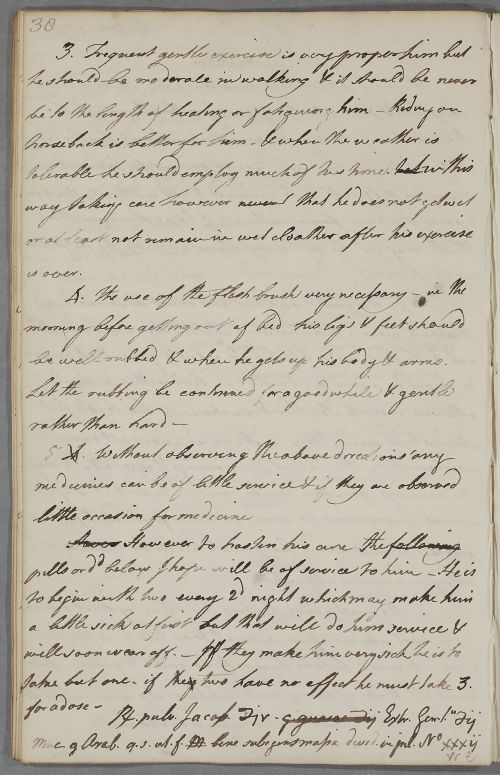 38
3. Frequent gentle exercise is very proper him but
he should be moderate in walking & it should be never
be to the length of heating or fatiguing him – Riding on
horseback is better for him. & when the weather is
tolerable he should employ much of his time. in this
way taking care however never that he does not get wet
or at least not remain in wet cloaths after his exercise
is over.
4. the use of the flesh brush very necessary – in the
morning before getting out of bed his legs & feet should
be well rubbed & when he gets up his body & arms.
Let the rubbing be continued for a good while & gentle
rather than hard –
5 4. Without observing the above directions any
medicines can be of little service & if they are observed
little occasion for medicine
However to hasten his cure the following
pills ord below I hope will be of service to him – He is
to begin with two every 2d night which may make him
a little sick at first but that will do him service &
will soon wear off. – If they make him very sick he is to
take but one. if they two have no effect he must take 3.
for a dose –
℞. pulv. Jacob. ℈iv. Extr. Gent. ʒij
muc. g Arab. q. s. ut. f. bene subigens massa divid. in pil. No xxxij